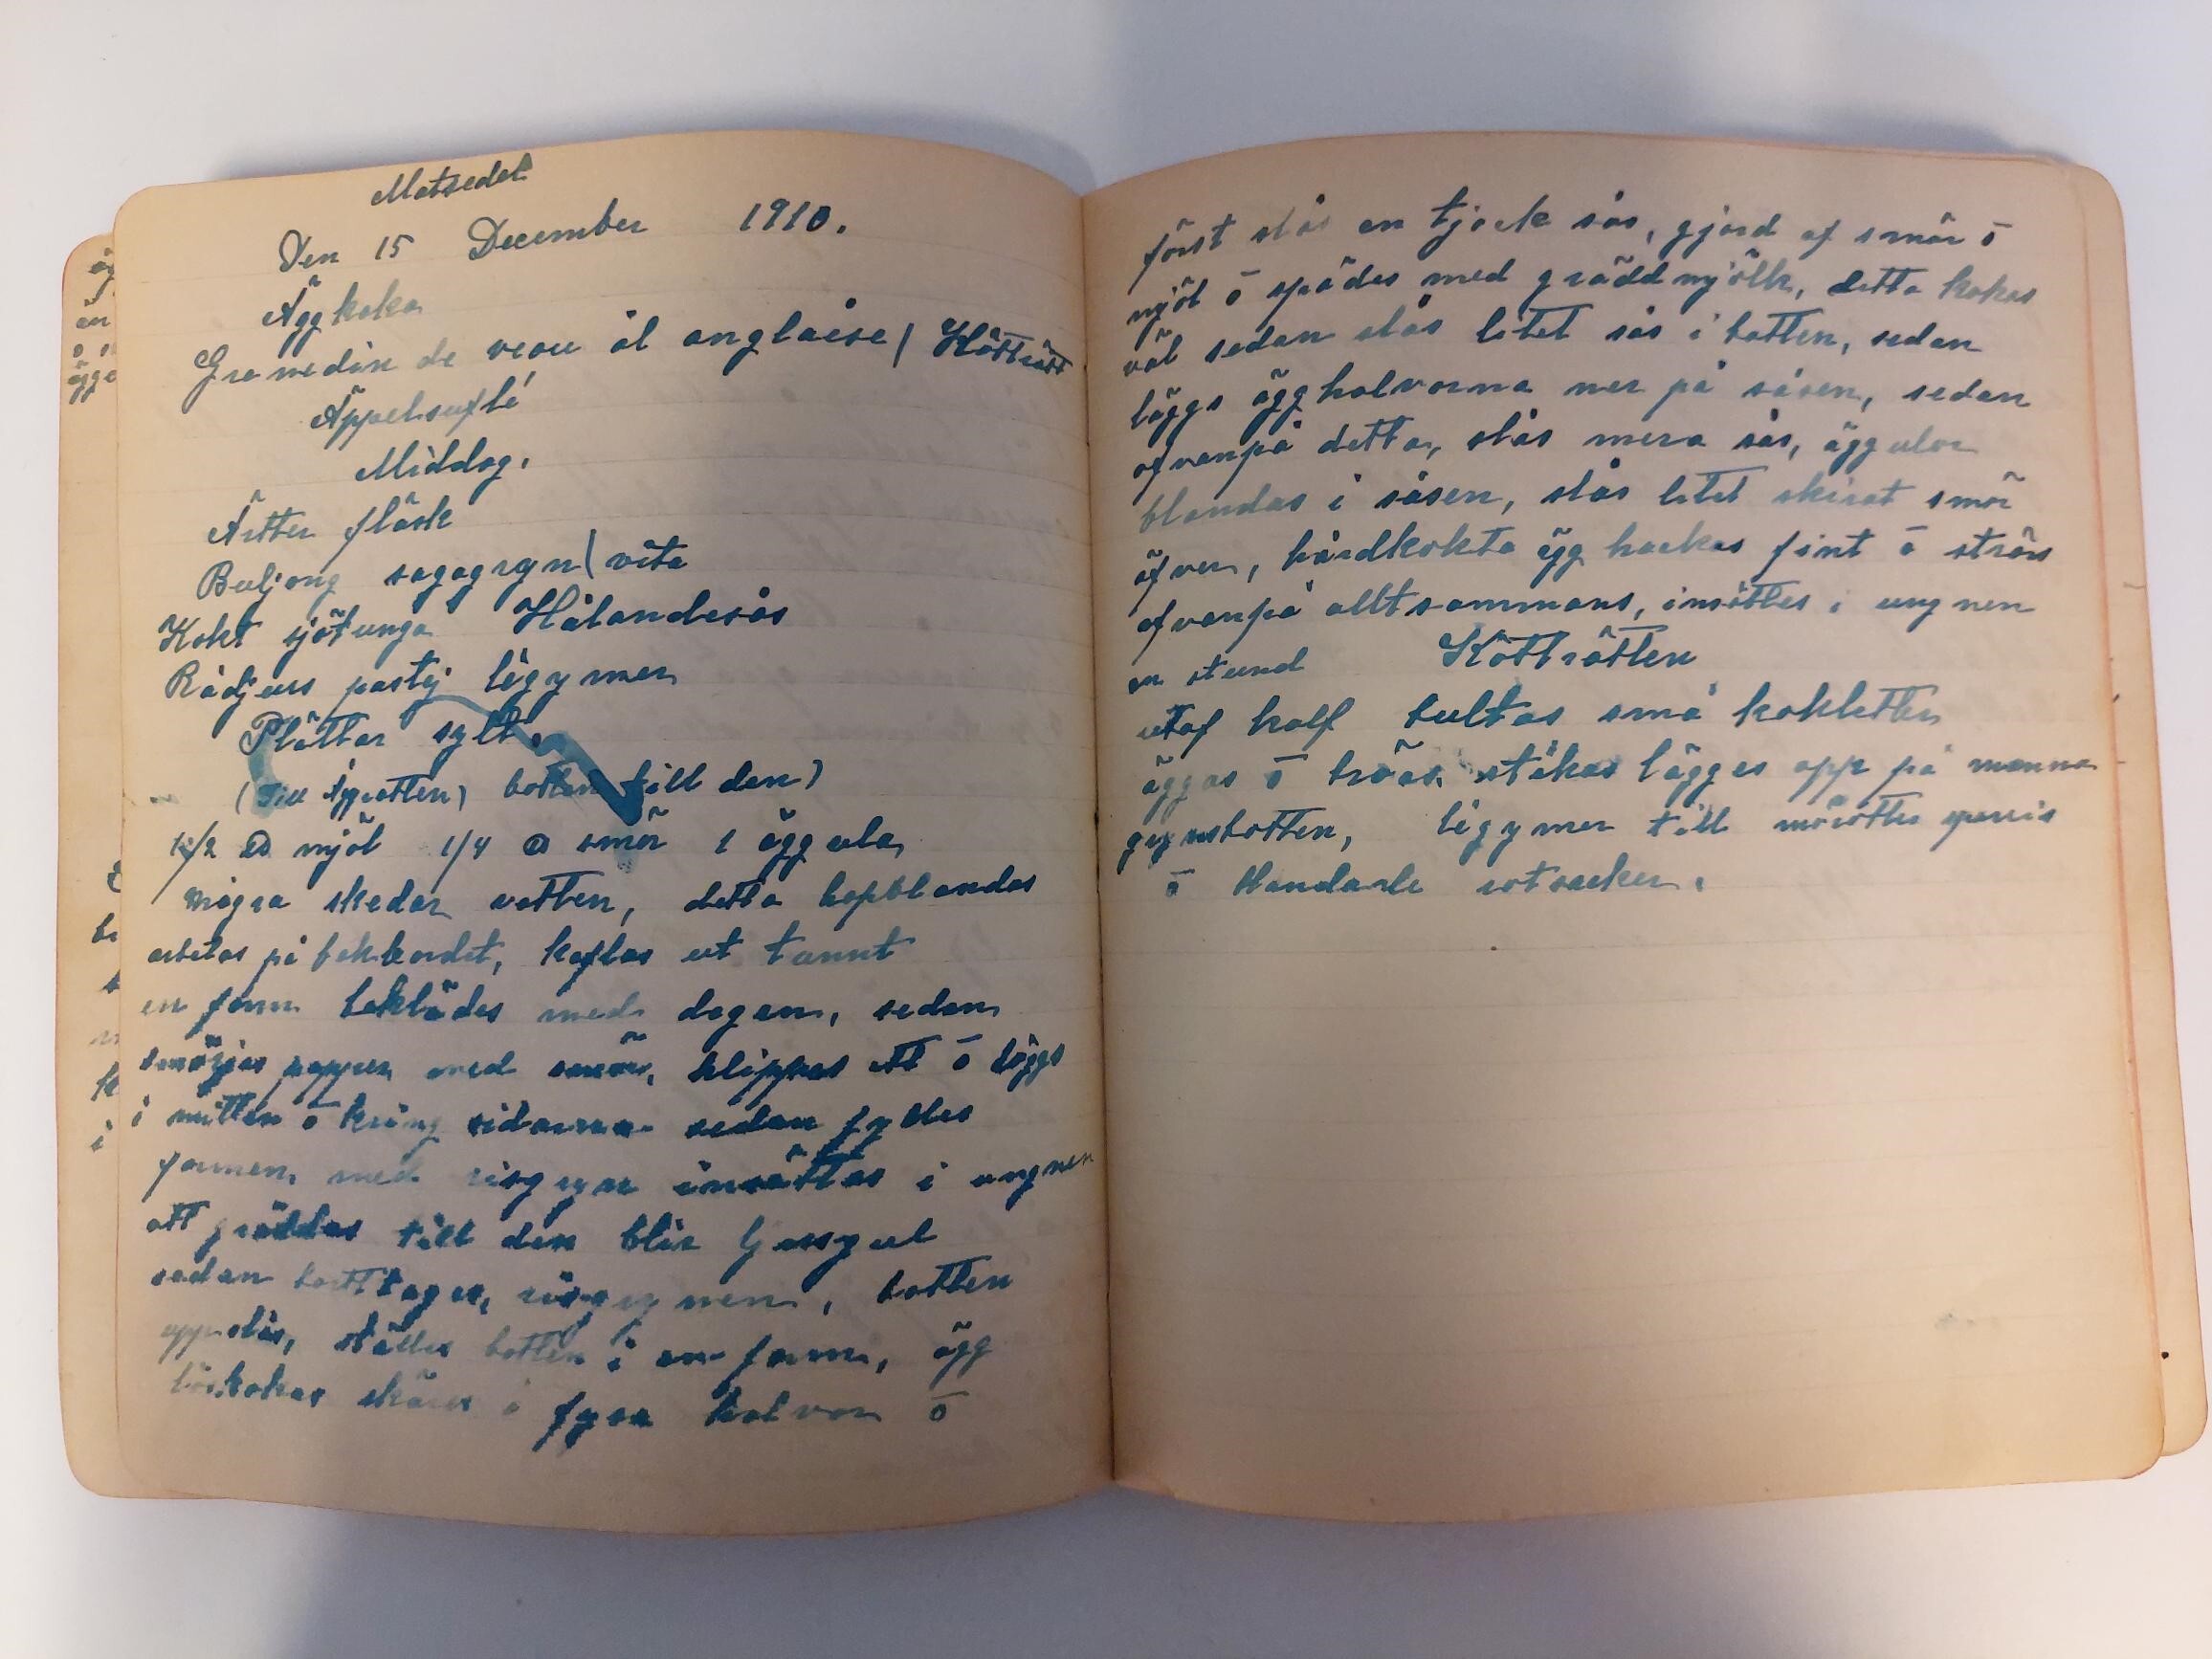 Matsedel
Den 15 December 1910.
Äggkaka
Grenedin de veau al anglaise / Kötträtt
Äppelsuflé
Middag.
Ärtter fläsk
Buljong sagogryn / vita
Kokt sjötunga Hålandesås
Rådjurs pastej légymer
Plättar sylt.
(Till Äggrätten) botten till den)
1/2 ℔ mjöl 1/4 ℔ smör 1 äggula
några skedar vatten, detta hopblandas
arbetas på bakbordet, kaflas ut tunnt
en form beklädes med degen, sedan
smörjes papper med smör, klippes ett ō läggs
i mitten ō kring sidorna sedan fylles
formen med risgryn insättas i ungnen
att gräddas till den blir ljusgul
sedan borttages, risgrynen, botten
uppslås, ställes botten i en form, ägg
löskokas skäres i fyra halvor ō
först slås en tjock sås, gjord af smör ō
mjöl ō spädes med gräddmjölk, detta kokas
väl sedan slås litet sås i botten, sedan
läggs ägghalvorna ner på såsen, sedan
ofvanpå detta, slås mera sås, äggulor
blandas i såsen, slås litet skirat smör
öfver, hårdkokta ägg hackas fint ō strös
ofvanpå alltsammans, insättes i ungnen
en stund Kötträtten
utaf kalf bultas små kokletter
äggas ō bröas stekas lägges opp på manna
grynsbotten, légymer till morötter
ō blandade rotsacker.
ägg